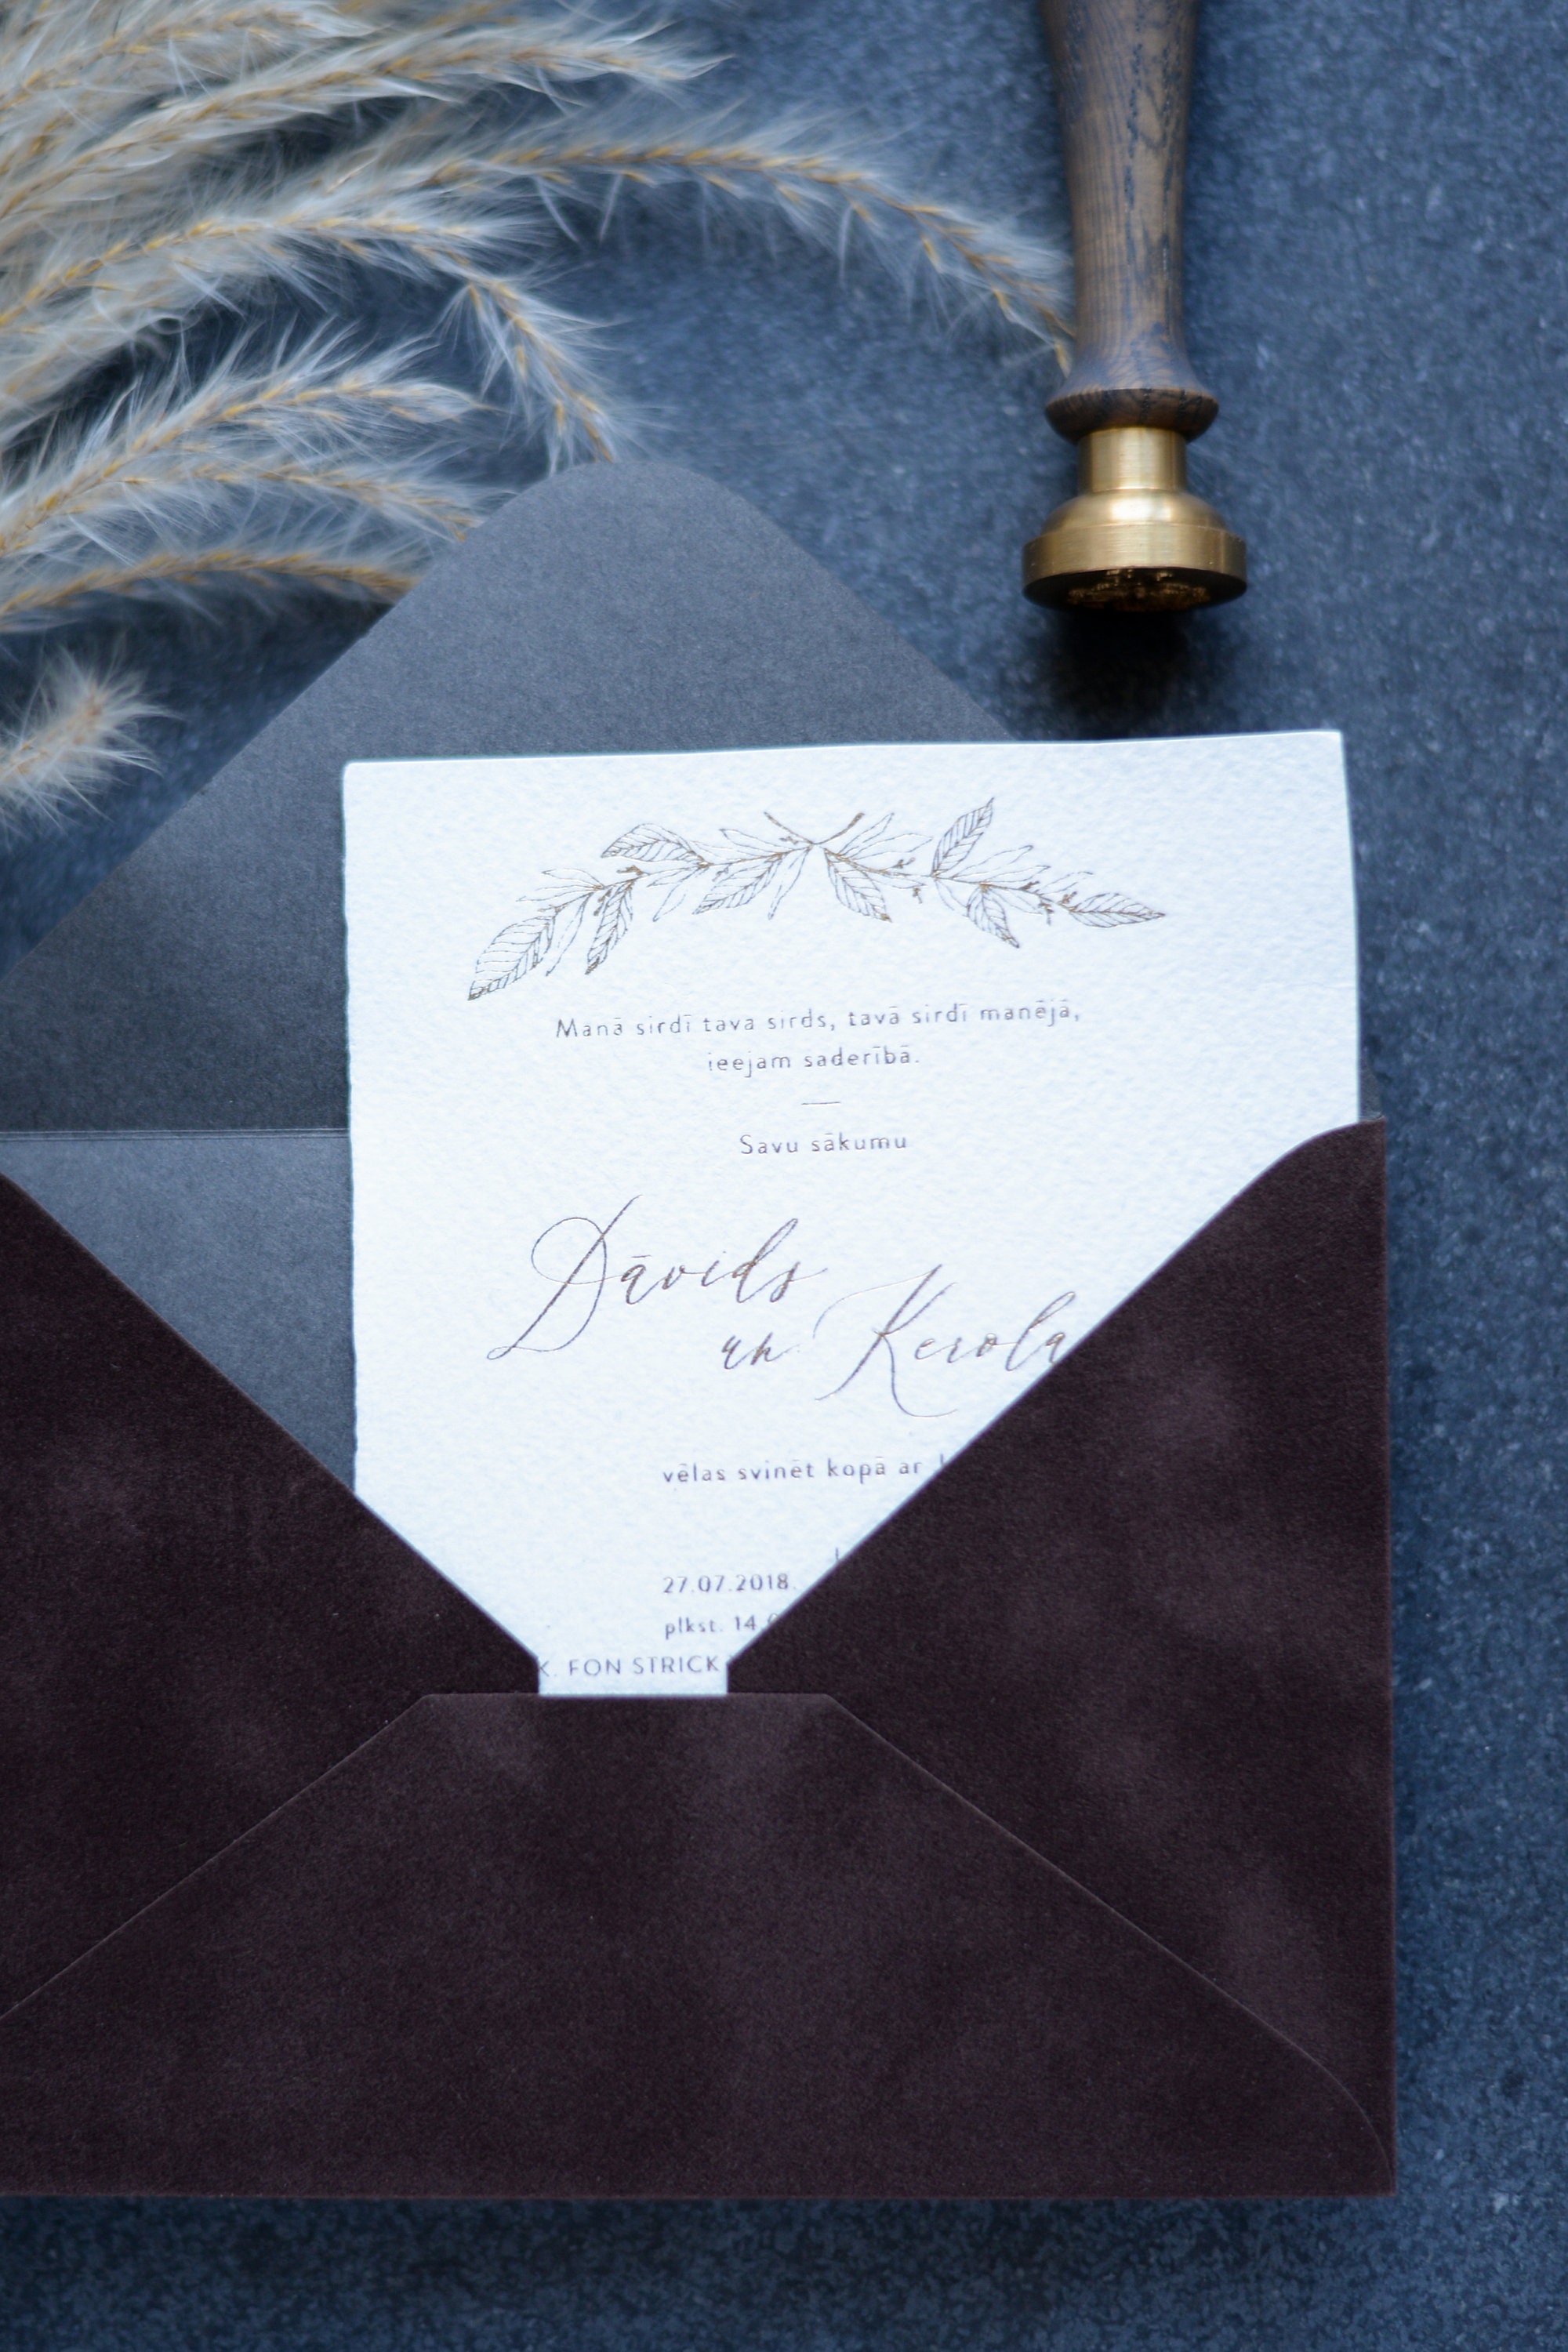 Manā sirdī tava sirds, tavā sirdī manējā,
ieejam saderībā.
Savu sākumu
Dāvids
un Kerola
vēlas svinēt kopā ar
27.07.2018.
plkst. 14
K. FON STRICK